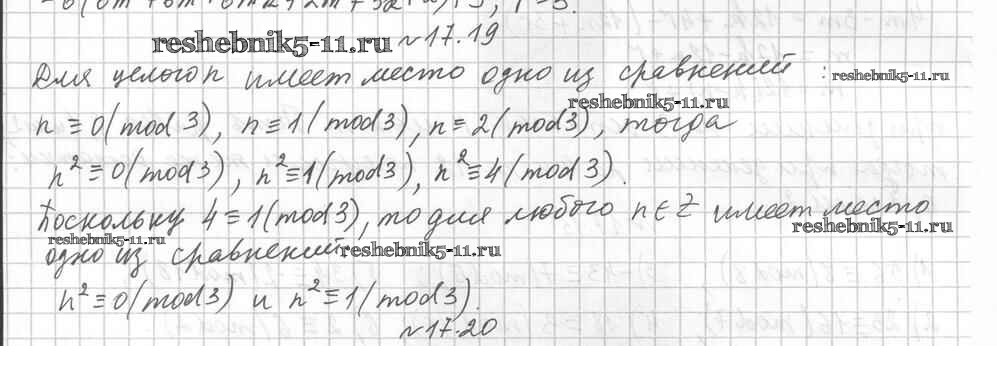 reshebnik5-11.ru №17.19
Для целого n имеет место одно из сравнений: reshebnik5-11.ru
reshebnik5-11.ru
n ≡ 0(mod 3), n ≡ 1(mod 3), n ≡ 2(mod 3), тогда
n² ≡ 0(mod 3), n² ≡ 1(mod 3), n² ≡ 4(mod 3).
Поскольку 4 ≡ 1(mod 3), то для любого n ∈ Z имеет место
reshebnik5-11.ru reshebnik5-11.ru
одно из сравнений reshebnik5-11.ru
n² ≡ 0(mod 3) и n² ≡ 1(mod 3).
№17.20